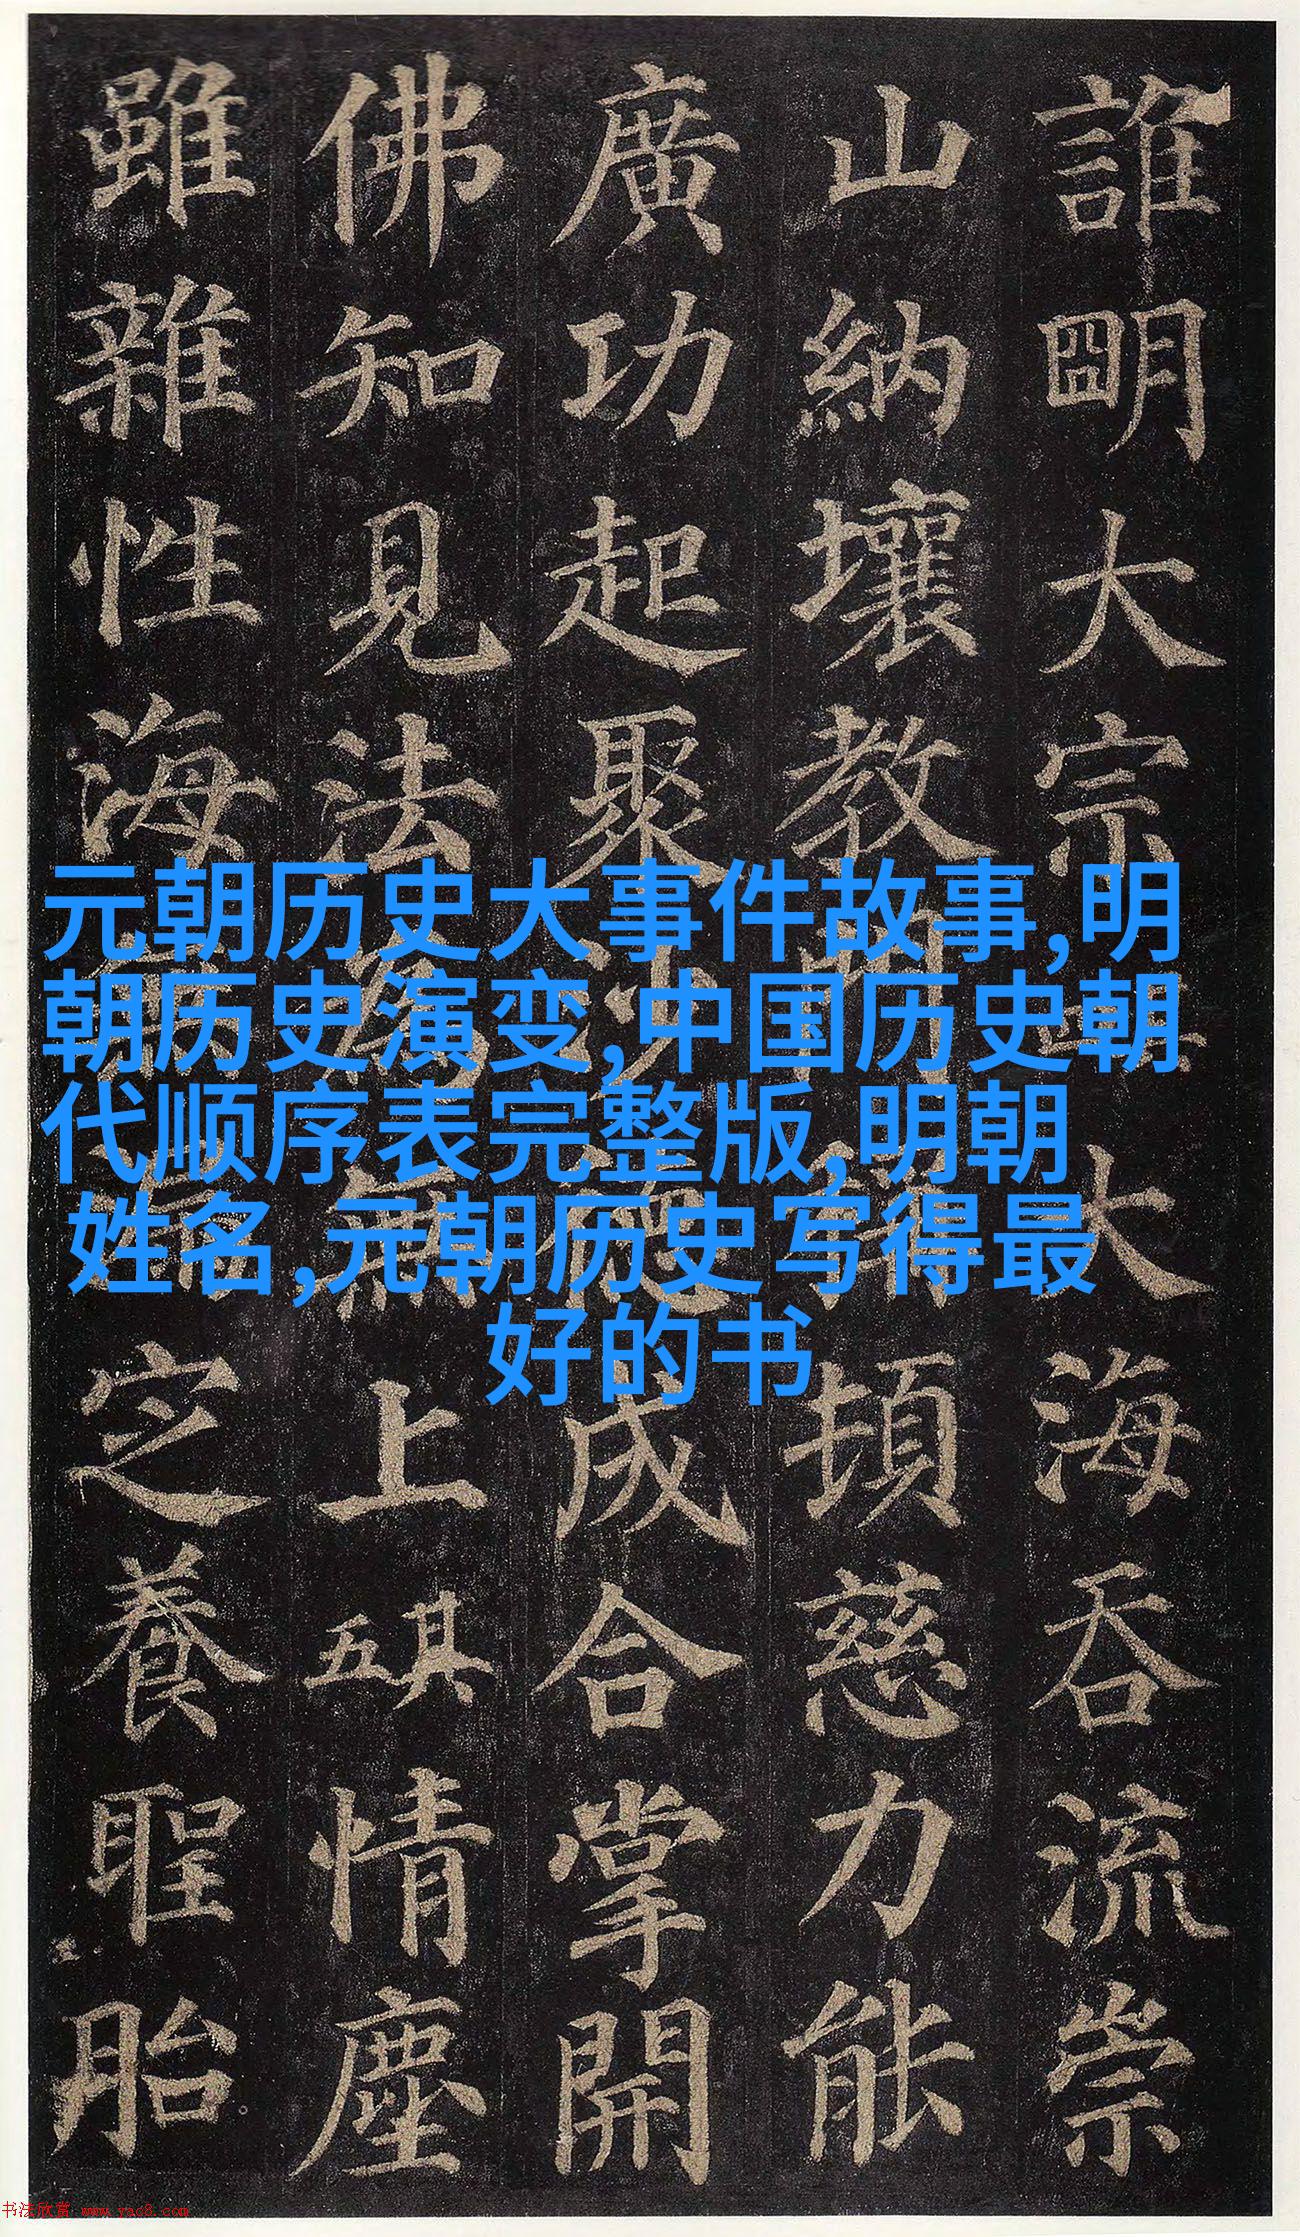 誰明大宗大海吞流崇
山納壤教門頓慈力能
廣功起聚沙德成合掌開
佛知見法為無上其五情塵
雖雜性海定養聖胎
元朝历史大事件故事,明
朝历史演变,中国历史朝
代顺序表完整版,明朝
姓名,元朝历史写得最
好的书
书法欣赏 www.yac8.com